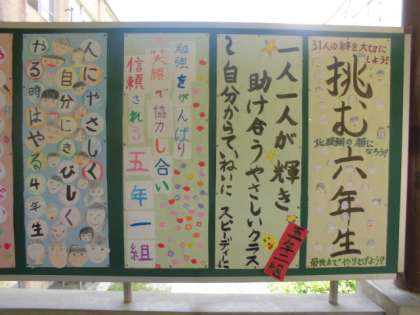 31人の絆を大切にしよう!
挑む六年生
北校舎の顔になろう!
最後までやりとげよう!
一人一人が輝き
助け合うやさしいクラス
2 自分からていねいに スピーディに
五年二組
勉強をがんばり
笑顔で協力し合い
信頼される五年一組
人にやさしく
自分にきびしく
やる時はやる4年生